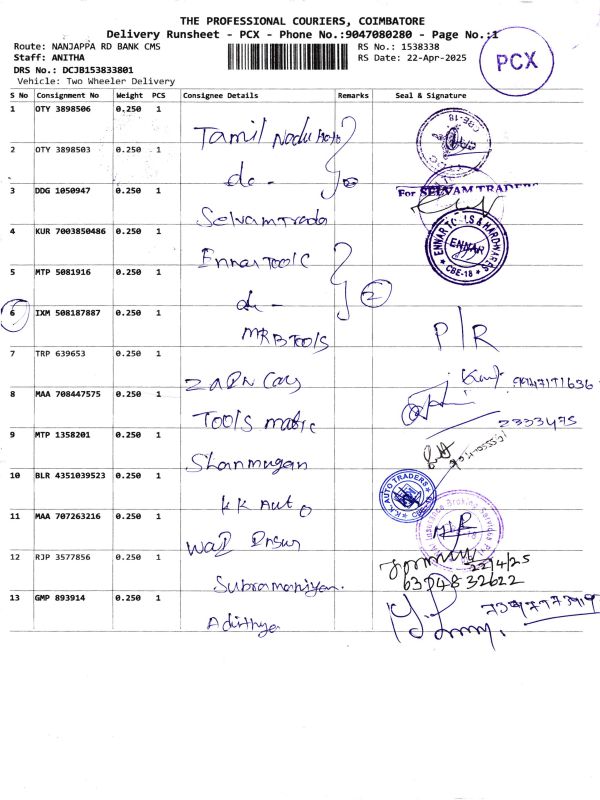 THE PROFESSIONAL COURIERS, COIMBATORE
Delivery Runsheet - PCX - Phone No.:9047080280 - Page No.:1
Route: NANJAPPA RD BANK CMS
RS No.: 1538338
Staff: ANITHA
RS Date: 22-Apr-2025
PCX
DRS No.: DCJB153833801
Vehicle: Two Wheeler Delivery
S No Consignment No Weight PCS Consignee Details Remarks Seal & Signature
1 OTY 3898506 0.250 1 Tamil Nadu
2 OTY 3898503 0.250 1 do -
3 DDG 1050947 0.250 1 Selvam Trade For SELVAM TRADERS
4 KUR 7003850486 0.250 1 Ennar Tools ENNAR TOOLS & HARDWARES ENNAR CBE-18
5 MTP 5081916 0.250 1 do - 2
6 IXM 508187887 0.250 1 MRB Tools P/R
7 TRP 639653 0.250 1
8 MAA 708447575 0.250 1 Tools matic 2333475
9 MTP 1358201 0.250 1 Shanmugan
10 BLR 4351039523 0.250 1 KK Auto K.K. AUTO TRADERS
11 MAA 707263216 0.250 1 Insurance Broking Services
12 RJP 3577856 0.250 1 Subramaniyan. 22/4/25
6394832622
13 GMP 893914 0.250 1 Adithya